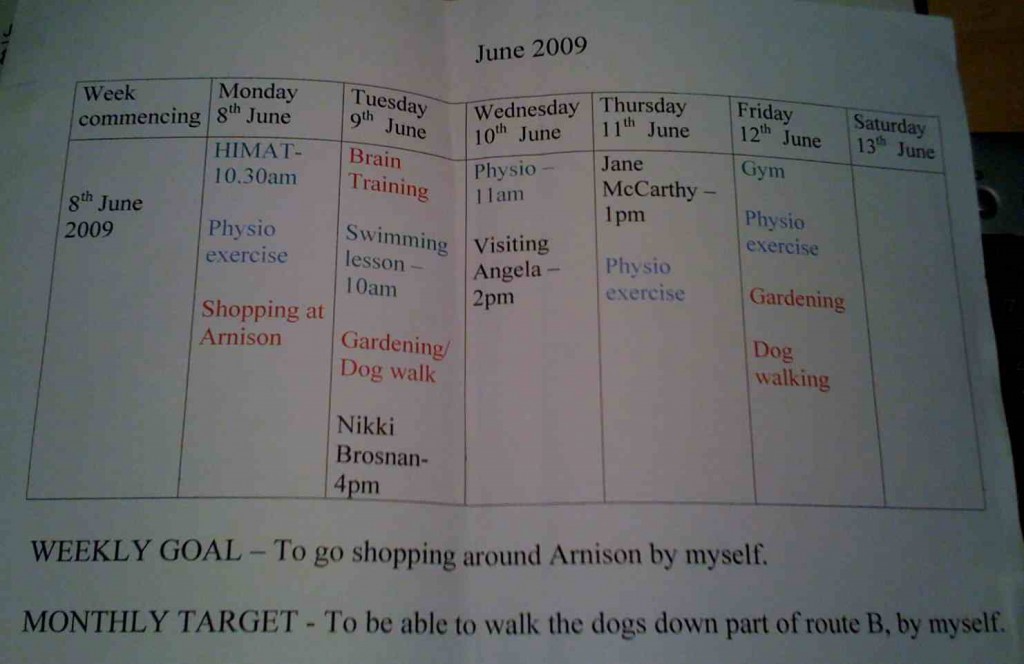 June 2009
Week commencing
Monday 8th June
Tuesday 9th June
Wednesday 10th June
Thursday 11th June
Friday 12th June
Saturday 13th June
8th June
2009
HIMAT-
10.30am
Physio
exercise
Shopping at
Arnison
Brain
Training
Swimming
lesson –
10am
Gardening/
Dog walk
Nikki
Brosnan-
4pm
Physio –
11am
Visiting
Angela –
2pm
Jane
McCarthy –
1pm
Physio
exercise
Gym
Physio
exercise
Gardening
Dog
walking
WEEKLY GOAL – To go shopping around Arnison by myself.
MONTHLY TARGET - To be able to walk the dogs down part of route B, by myself.